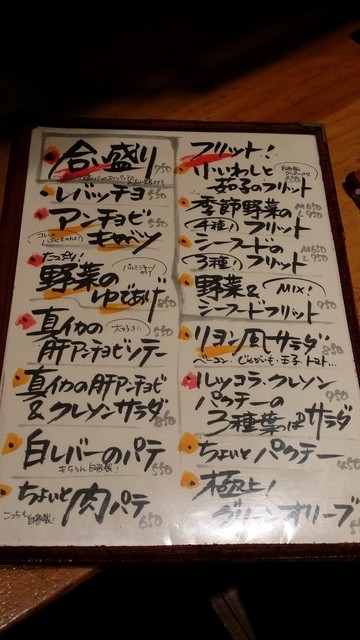 合い盛り 750
レバッチョ 550
アンチョビ 550
キャベツ
たっぷり!
野菜の
ゆであげ 850
真イカの
肝アンチョビソテー 550
真イカの肝アンチョビ
&クレソンサラダ 850
白レバーのパテ 550
もちろん自家製!
ちょいと肉パテ 650
こっちも自家製!
フリット!
小いわしと
茄子のフリット
季節野菜の M650
(4種)フリット L950
シーフードの M650
(3種)フリット L950
野菜& MIX!
シーフードフリット 950
リヨン風サラダ 850
ベーコン、じゃがいも、玉子、トマト…
ルッコラ・クレソン 950
パクチーの
3種葉っぱサラダ
ちょいとパクチー 450
極上!
グリーンオリーブ